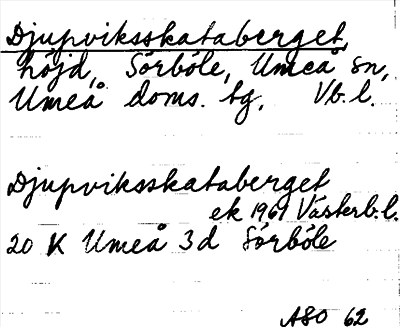 Djupviksskataberget,
höjd, Sörböle, Umeå sn,
Umeå doms. tg, Vb. l.
Djupviksskataberget
ek 1961 Västerb. l.
20 K Umeå 3d Sörböle
ASO 62